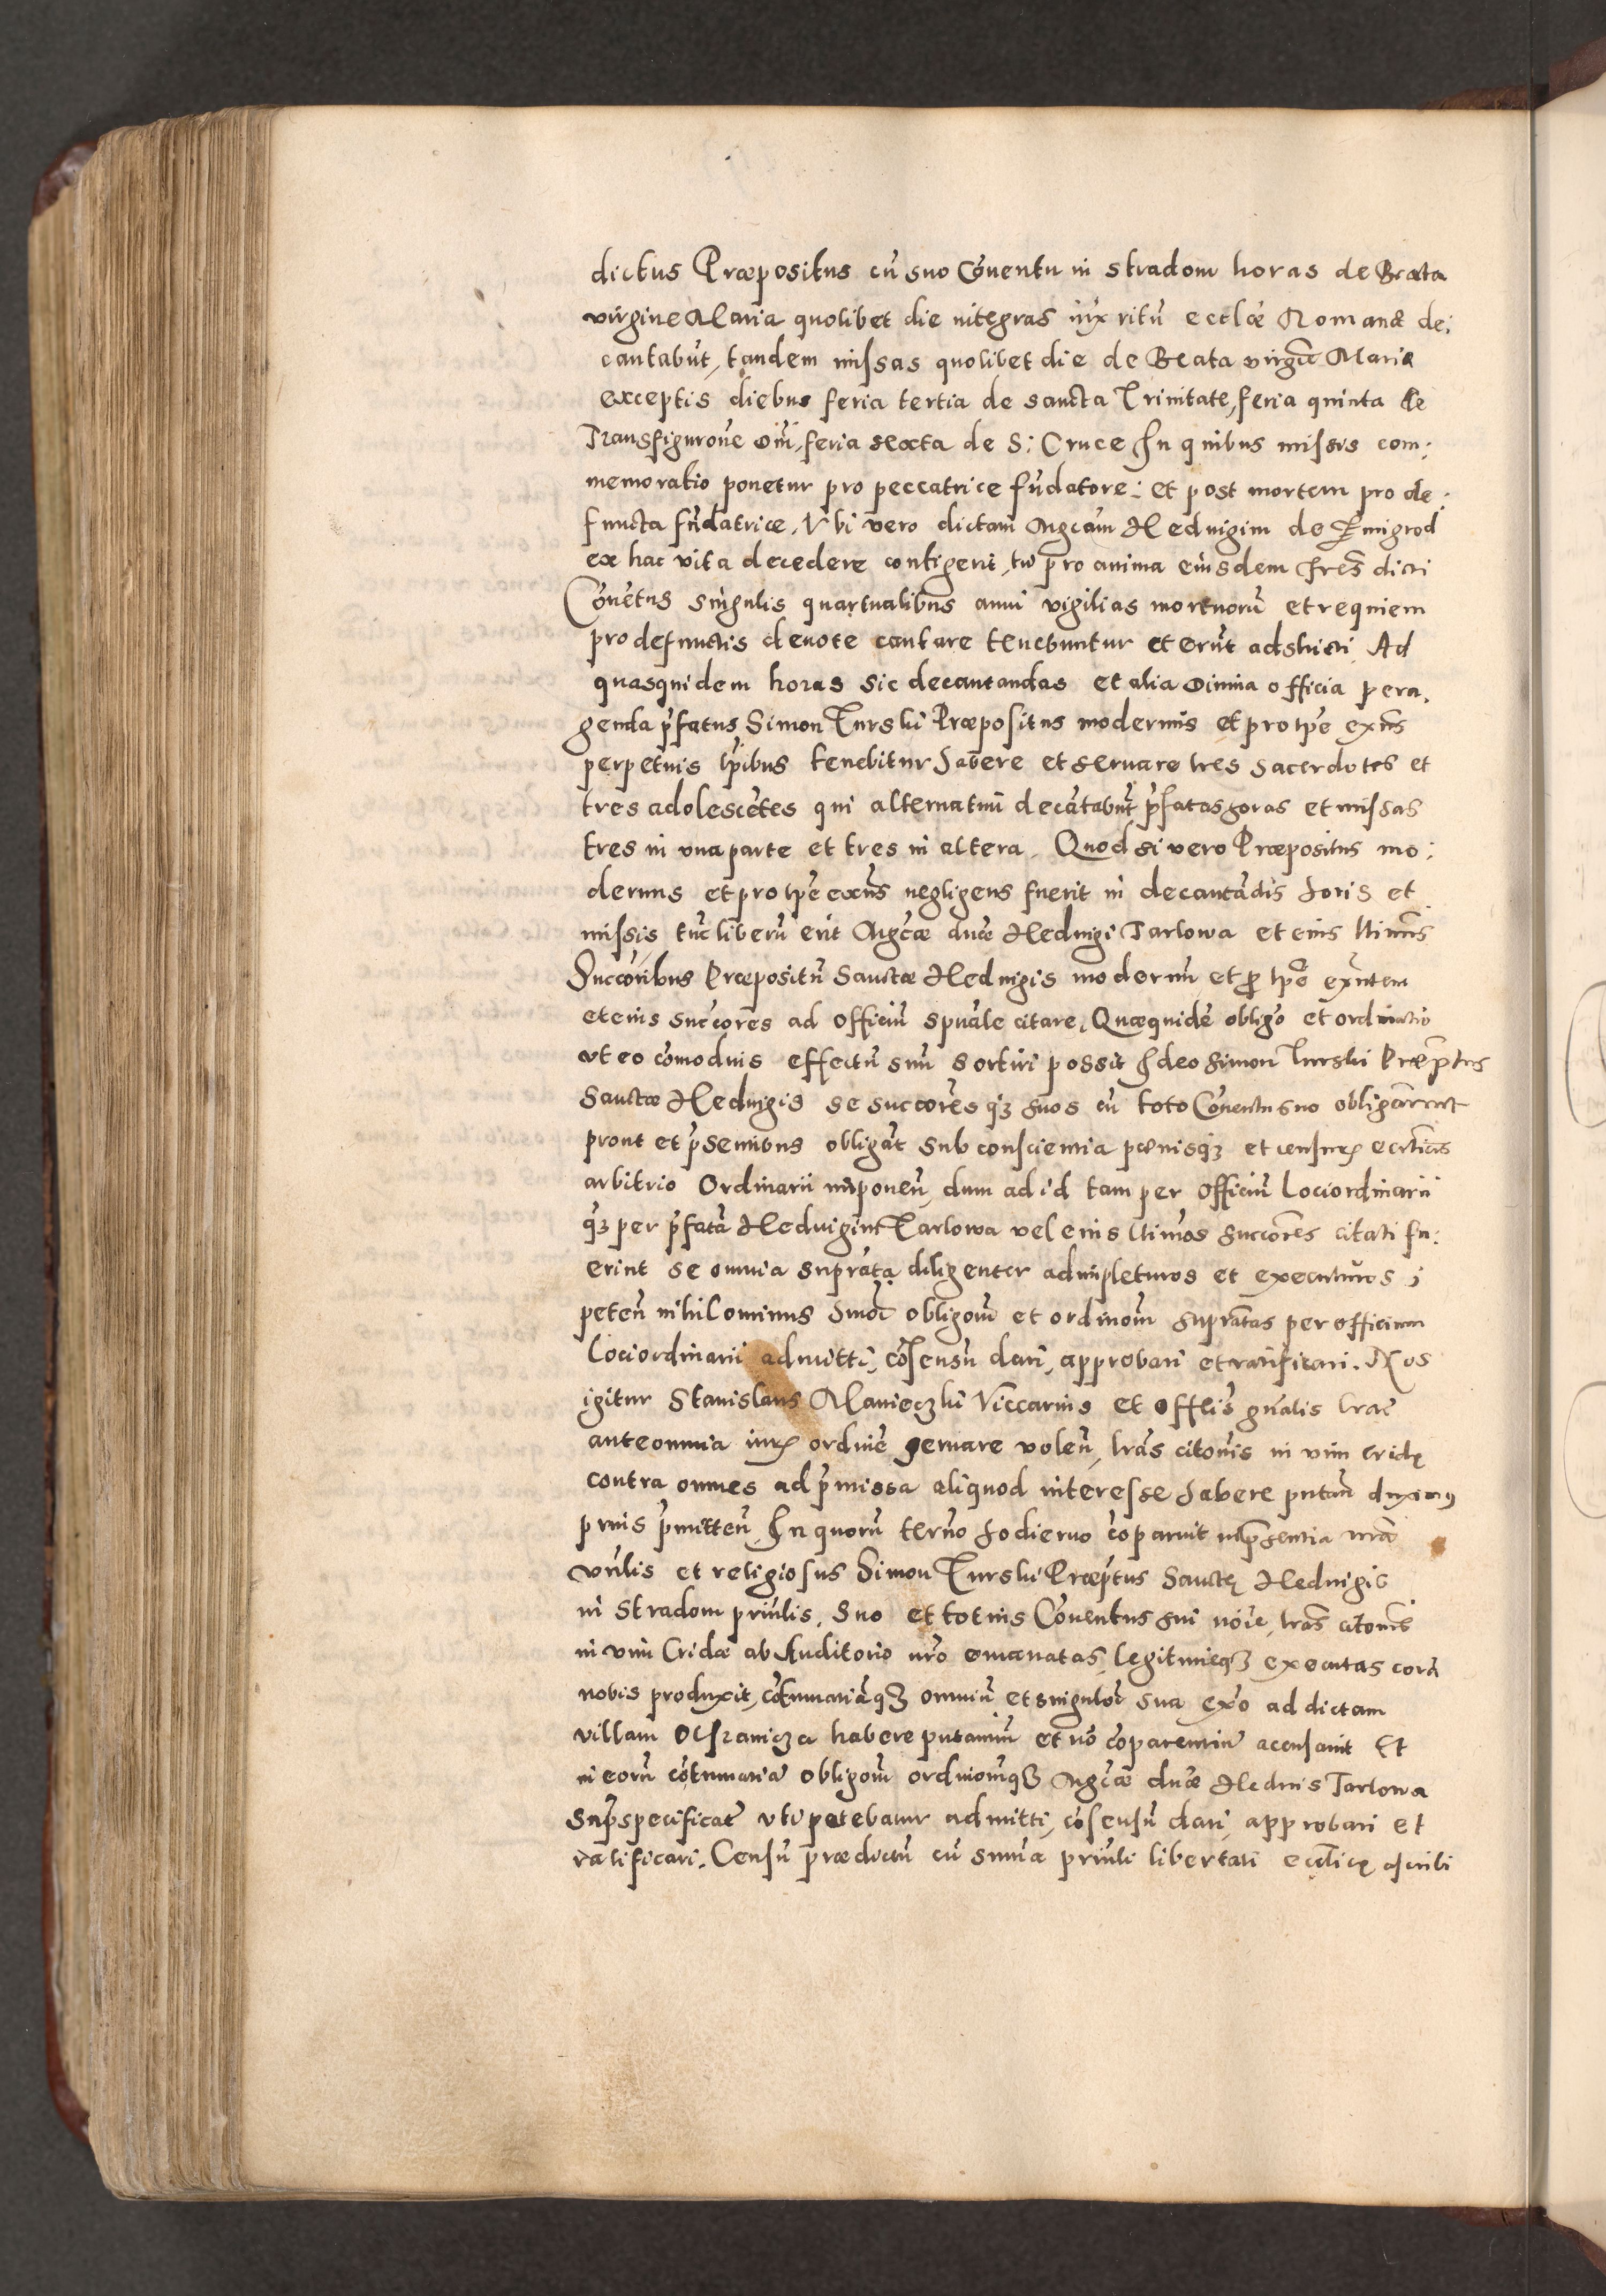 dictus Præpositus cū suo Cōuentu in stradom horas de Beata
virgine Maria quolibet die integras iux ritū eccłæ Romanæ de:
cantabūt, tandem missas quolibet die de Beata virgīe Maria
exceptis diebus feria tertia de sancta Trinitate, feria quinta de
Transfiguroñe Dnī, feria sexta de S: Cruce In quibus missis com:
memoratio ponetur pro peccatrice fūdatore: et post mortem pro de:
functa fūdatrice, Vbi vero dictam Mgcam Heduigim de Zmigrod
ex hac vita decedere contigerit, tū pro anima eiusdem fres dicti
Cōuētus singulis quartualibus anni vigilias mortuorū et requiem
pro defunctis deuote cantare tenebuntur et erūt adstricti Ad
quasquidem horas sic decantandas et alia diuina officia pera,
genda p̄fatus Simon Turski Præpositus modernus et pro tp̄e exn̄s
perpetuis tp̄ibus tenebitur habere et seruare tres sacerdotes et
tres adolescētes qui alternatim decātabūt p̄fatas horas et missas
tres in vna parte et tres in altera. Quod si vero Præpositus mo:
dernus et pro tp̄e exn̄s negligens fuerit in decantādis horis et
missis tūc liberū erit Mgcæ dn̄æ Heduigi Tarlowa et eius ltimis
Succoribus Præpositū Sanctæ Heduigis modernū et ꝓ tp̄e exn̄tem
et eius succores ad officiū spūale citare, Quæquidē obligo et ordinatio
vt eo cōmodius effectū suū sortiri possit Ideo Simon Turski Præp̄tus
Sanctæ Heduigis se succores qȝ suos cū toto Cōuentu suo obligarunt
prout et p̄sentibus obligāt sub conscientia pœnisqȝ et censuris eccłticis
arbitrio Ordinarii imponeñ, dum ad id tam per officiū Lociordinarii
qȝ per p̄fatā Heduigim Tarlowa vel eius ltimos succores citati fu:
erint se omnia suprata diligenter adimpleturos et executuros,
peteñ nihilominus hmōi obligom̄ et ordinom̄ supratas per officium
Lociordinarii admitti, cōsensū dari, approbari et ratificari. Nos
igitur Stanislaus Manieczki Viccarius et Offlis gn̄alis
ante omnia iuris ordinē seruare voleñ, lras citonis in vim cridę
contra omnes ad p̄missa aliquod interesse habere putañ duximꝰ
prius p̄mitteñ, In quorū terno hodierno cōparuit in p̄sentia nrā
vn̄lis et religiosus Simon Turski Præp̄tus Sanctę Heduigis
in Stradom priulis, Suo et totius Cōuentus sui noīe, lras citonis
in vim Cridæ ab Auditorio nro emanatas, legitimeqȝ executas corā
nobis produxit, cōtumaciāqȝ omniū et singulor̄ sua exo ad dictam
villam habere putantiū et nō cōparentiū accusauit Et
in eorū cōtumaciā obligom̄ ordinomqȝ Mgcæ dn̄æ Heduis Tarlowa
Sup̄specificat̄ vti petebatur admitti, cōsensū dari, approbari et
ratificari. Censū prædictū cū sum̄a priuli libertati eccłicę ascribi